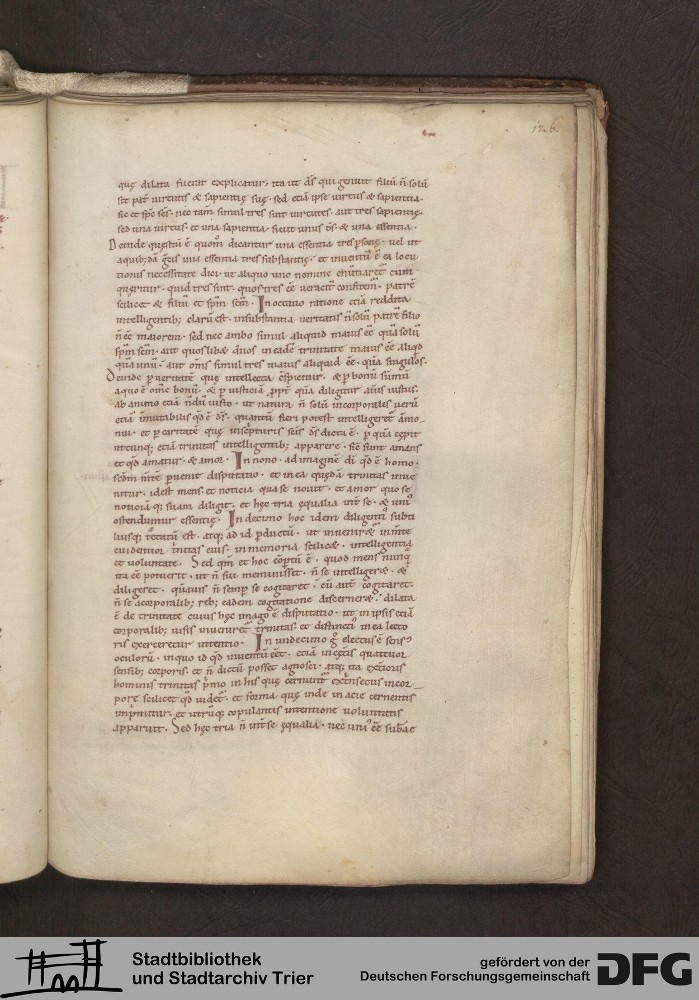 126.
quę dilata fuerat explicatur, ita ut ds̄ qui genuit filiū n̄ solū
sit pat̄ uirtutis & sapientię suę, sed etiā ipse uirtus & sapientia.
sic et spc̄ scs̄. nec tam̄ simul tres sint uirtutes, aut tres sapientię.
sed una uirtus, et una sapientia, sicut unus ds̄, & una essentia.
Deinde quęsitū ē quom̄ dicantur una essentia tres psonę, uel ut
a quib;dā gręcis una essentia tres substantię. et inuentū ē ea locu
tionis necessitate dici, ut aliquo uno nomine enuntiaret cum
queritur, quid tres sint, quos tres eē ueracit̄ confitem̄, patrē
scilicet & filiū et spm̄ scm̄. In octauo ratione etiā reddita
intelligentib; clarū est, in substantia ueritatis n̄ solū patrē filio
n̄ eē maiorem, sed nec ambo simul aliquid maius eē quā solū
spm̄ scm̄, aut quoslib& duos in eadē trinitate maius eē aliqd
quā unū, aut om̄s simul tres maius aliquid eē, quā singulos.
Deinde p ueritatē quę intellecta c̄spicitur, & p bonū sūmū
a quo ē om̄e bonū, & p iusticiā ppt̄ quā diligitur anim̄ iustus,
ab animo etiā n̄dū iusto, ut natura n̄ solū incorporalis uerū
etiā inmutabilis qd̄ ē ds̄, quantū fieri potest intelligeret̄ ammo-
nui, et p caritatē quę in scripturis scīs ds̄ dicta ē, p quā cępit
utcunq; etiā trinitas intelligentib; apparere, sic̄ sunt amans
et qd̄ amatur, & amor. In nono, ad imaginē dī qd̄ ē homo,
scdm̄ mte puenit disputatio, et in ea quędā trinitas inue
nitur, id est mens et noticia qua se nouit, et amor quo se
noticiāq; suam diligit, et hęc tria ęqualia int̄ se, & uni
ostenduntur essentię. In decimo hoc idem diligentiū subti
liusq; t̄ctatū est, atq; ad id pductū, ut inuenir&̄ in m̄te
euidentior t̄nitas eius, in memoria scilic&, intelligentia
et uoluntate. Sed qm̄ et hoc cōptū ē, quod mens nunq̄
ita eē potuerit, ut n̄ sui meminisset, n̄ se intelliger&, &
diligeret, quāuis n̄ semp se cogitaret, cū aut̄ cogitaret,
n̄ se a corporalib; reb; eadem cogitatione discerner&, dilata
ē de trinitate cuius hęc imago ē disputatio, ut in ipsis etiā
corporalib; uisis inueniret̄ trinitas, et distincti in ea lecto
ris exerceretur intentio. In undecimo g̊ electus ē sens
oculorū, in quo id qd̄ inuentū eēt, etiā in cet̄is quattuor
sensib; corporis, et n̄ dictū posset agnosci, atq; ita exterioris
hominis trinitas pmo in his quę cernunt̄ ext̄nsecus in cor-
pore scilicet qd̄ uidet̄, et forma quę inde in acie cernentis
inpmitur, et utrūq; copulantis intentione uoluntatis
apparuit. Sed hęc tria n̄ int̄ se ęqualia, nec uni eē substāē
Stadtbibliothek
und Stadtarchiv Trier
gefördert von der
Deutschen Forschungsgemeinschaft
DFG